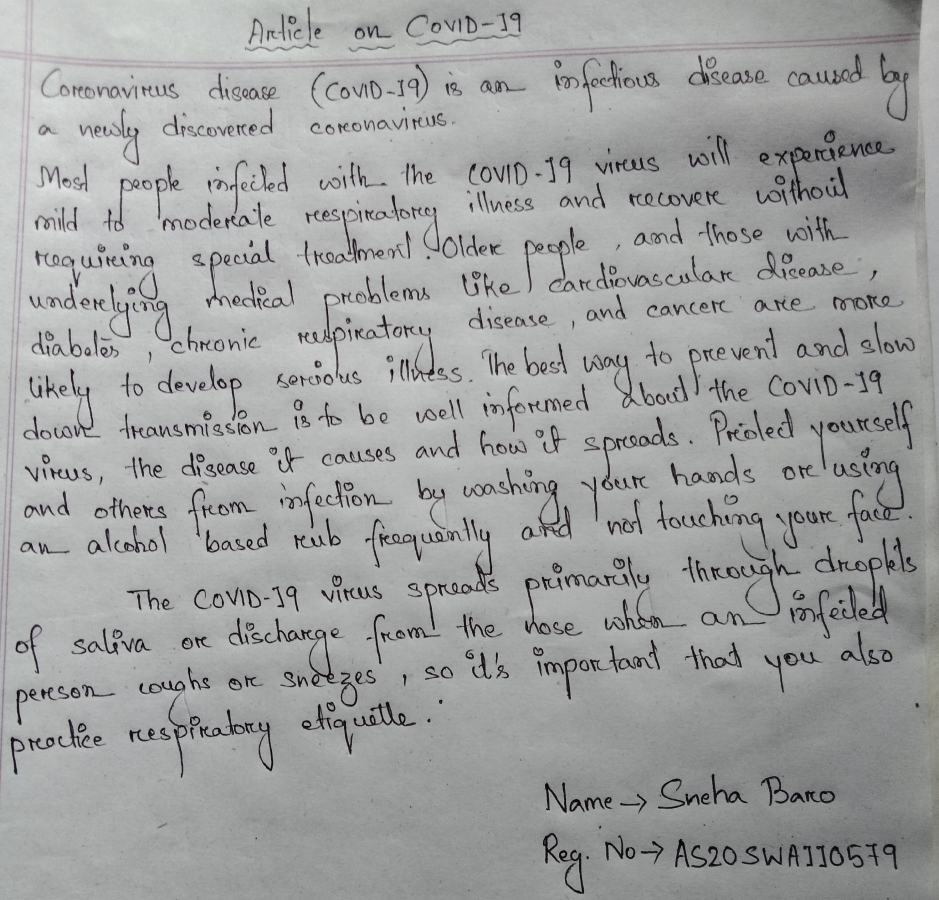 Article on COVID-19
Coronavirus disease (COVID-19) is an infectious disease caused by
a newly discovered coronavirus.
Most people infected with the COVID-19 virus will experience
mild to moderate respiratory illness and recover without
requiring special treatment. Older people, and those with
underlying medical problems like cardiovascular dicease,
diabates, chronic respiratory disease, and cancer are more
likely to develop serious illness. The best way to prevent and slow
down transmission is to be well informed about the COVID-19
virus, the disease it causes and how it spreads. Protect yourself
and others from infection by washing your hands or using
an alcohol based rub frequently and not touching your face.
The COVID-19 virus spreads primarily through droplets
of saliva or discharge from the nose when an infected
person coughs or sneezes, so it's important that you also
practice respiratory etiquette.
Name → Sneha Baro
Reg. No → AS20SWA110579